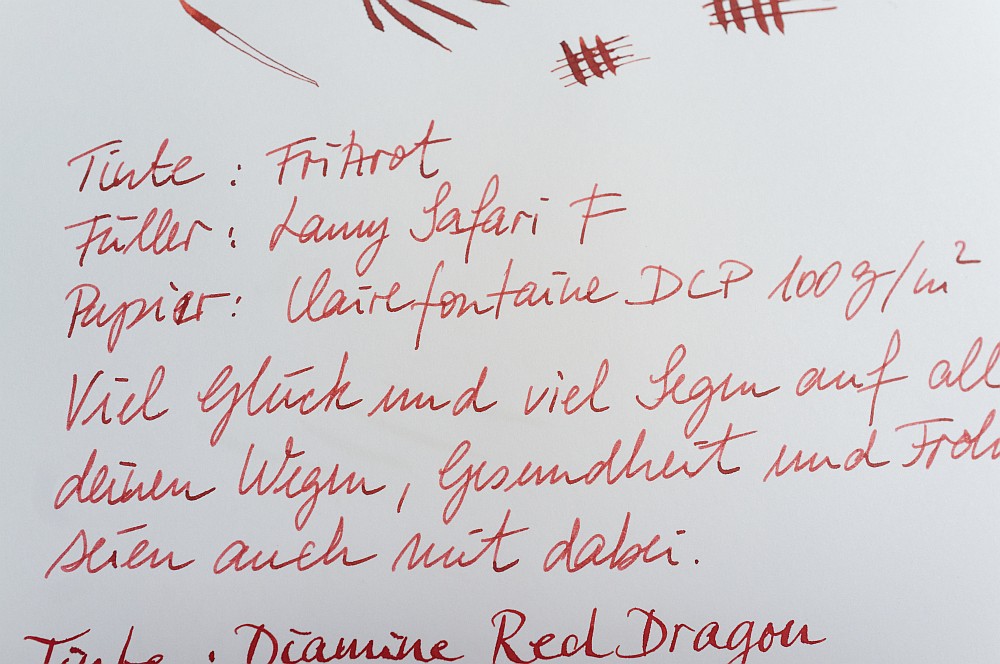 Tinte : Fritzrot
Füller : Lamy Safari F
Papier : Clairefontaine DCP 100 g/m²
Viel Glück und viel Segen auf all
deinen Wegen, Gesundheit und Froh
seien auch mit dabei.
Tinte : Diamine Red Dragon